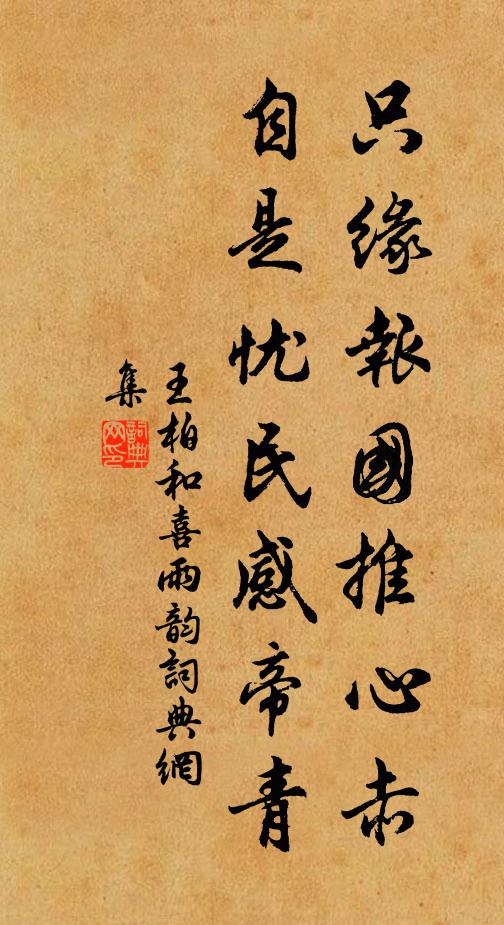 只緣報國推心赤
自是忧民感帝青
王柏和喜雨韵詞典網
集
詞典网印